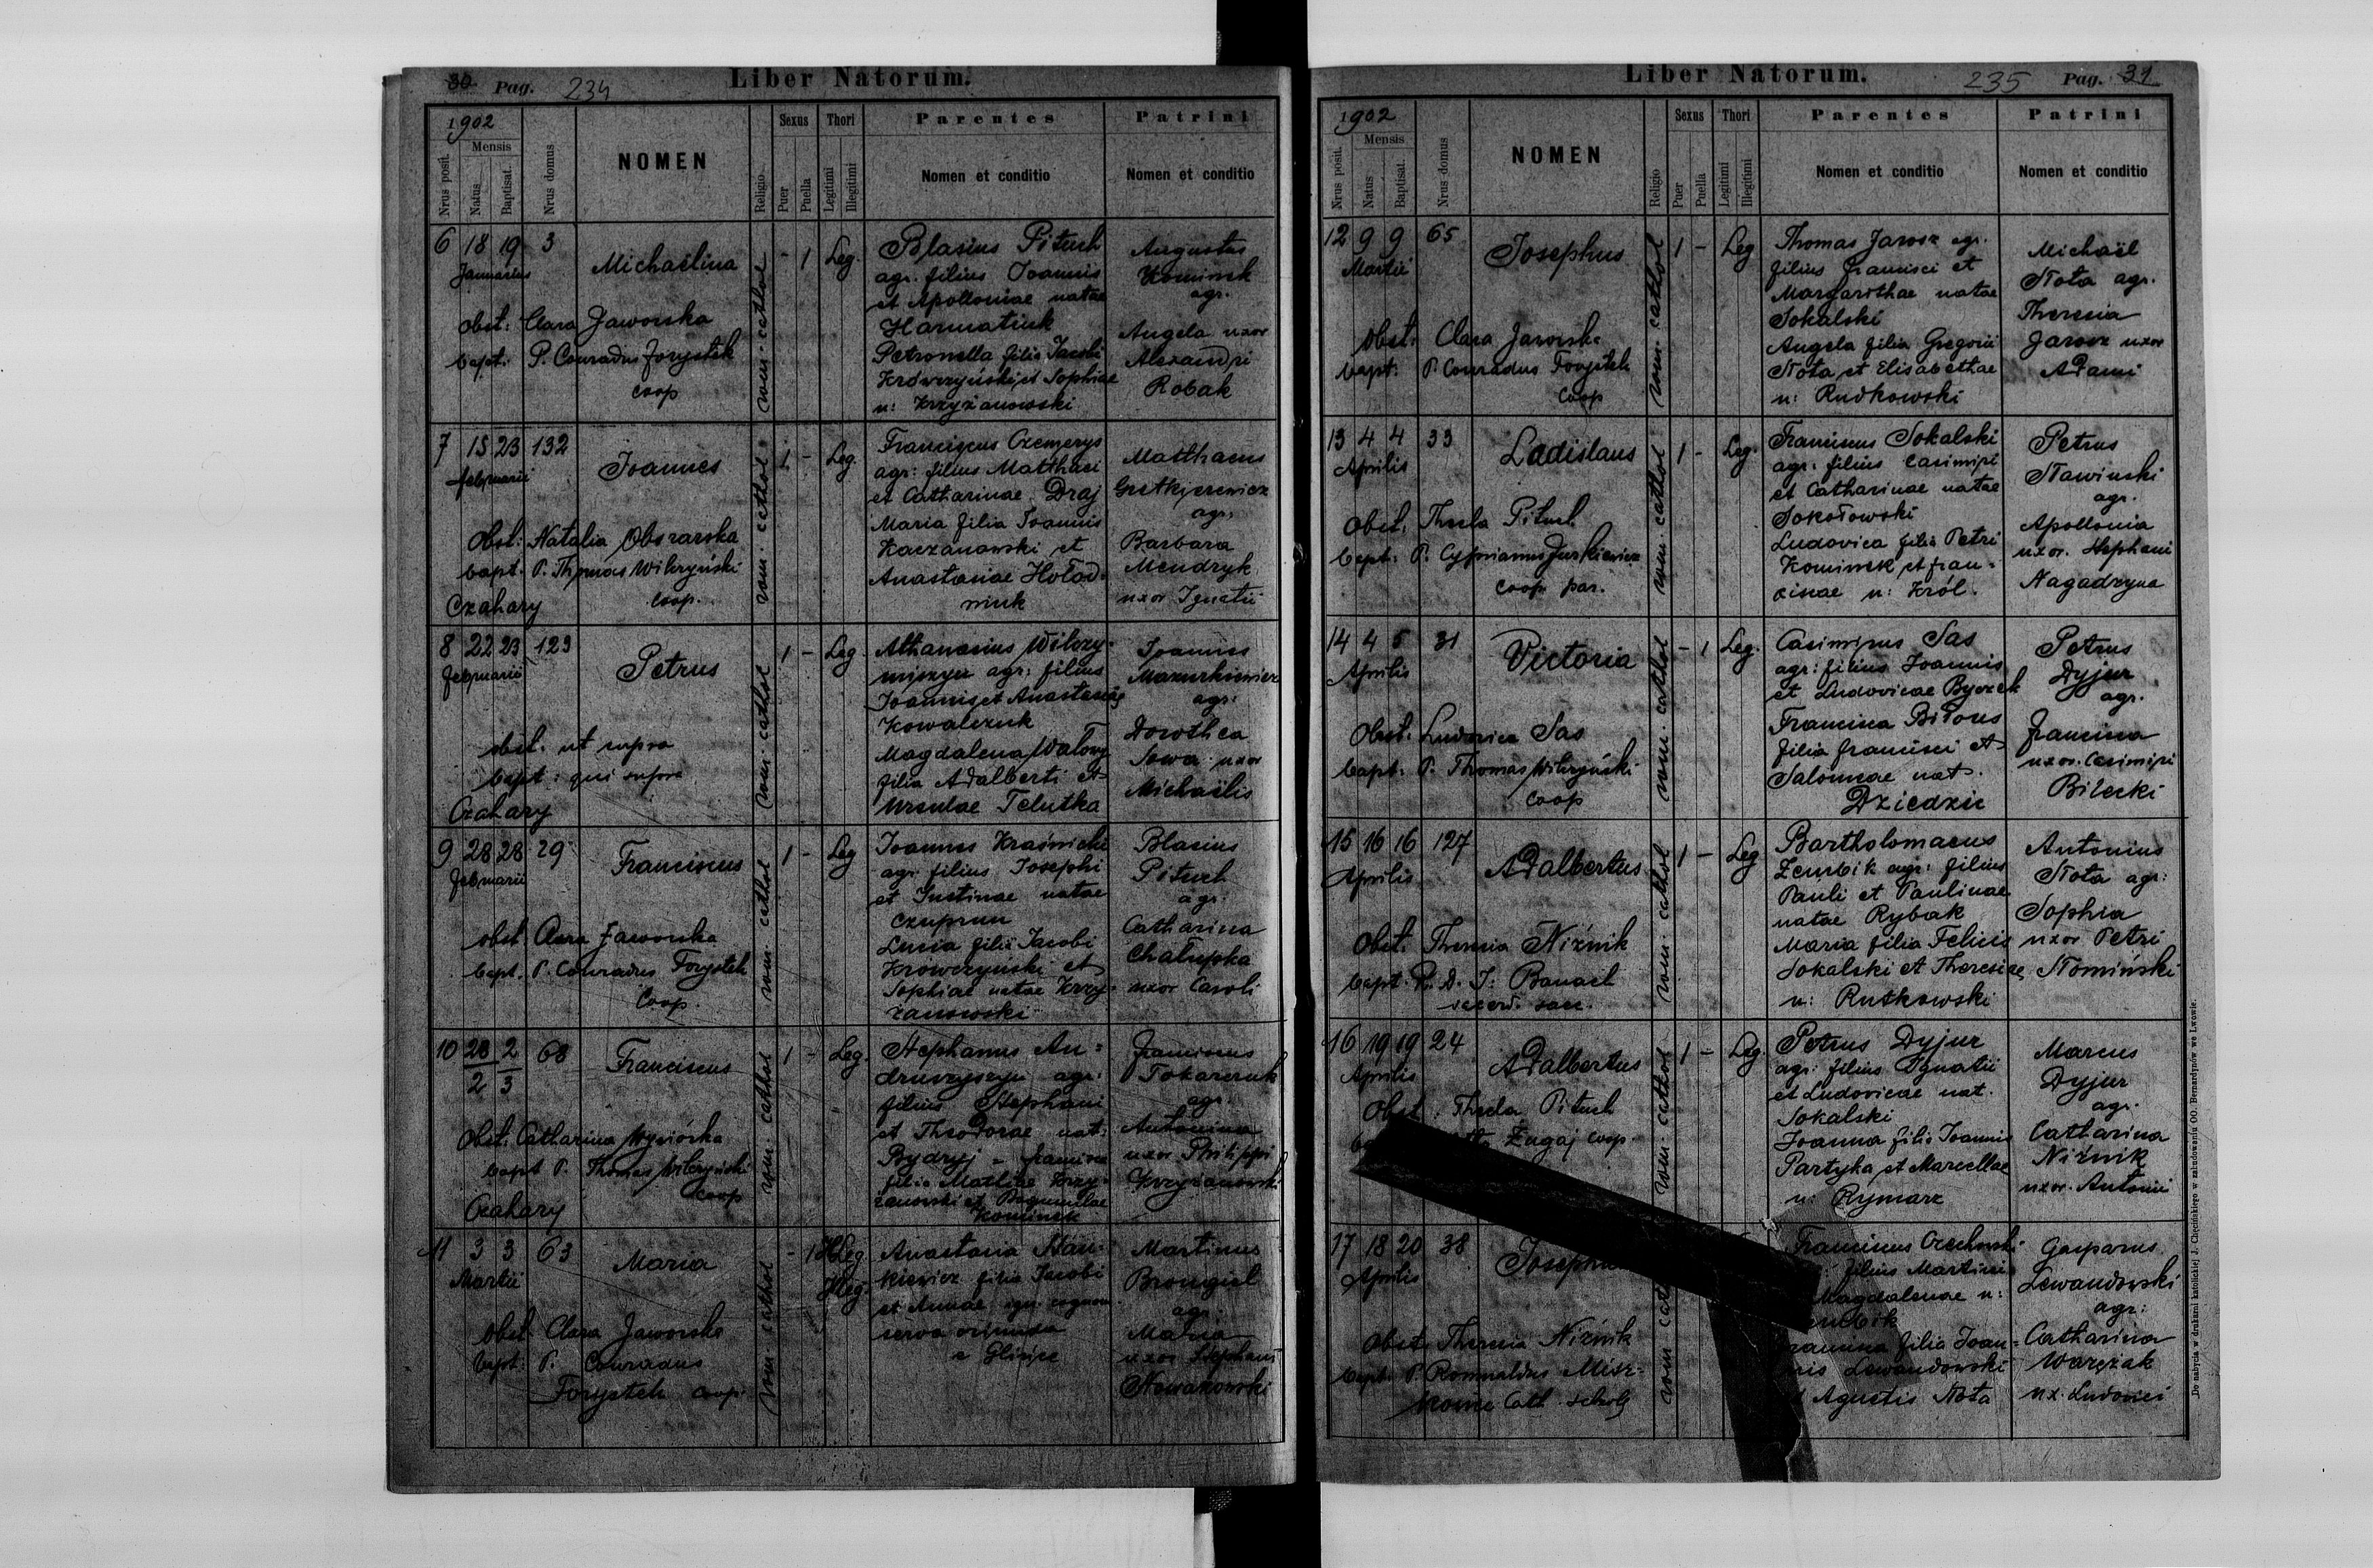 30 Pag. 234
Liber Natorum.
1902
Nrus posit.
Mensis
Natus
Baptisat.
Nrus domus
NOMEN
Religio
Sexus
Puer
Puella
Thori
Legitimi
Illegitimi
Parentes
Nomen et conditio
Patrini
Nomen et conditio
6 18 19 3
Januarius
Michaëlina
rom. cathol
- 1 Leg.
obst: Clara Jaworska
bapt: P. Conradus Forystek
coop
Blasius Pituch
agr. filius Joannis
et Apolloniae natae
Harmatiuk
Petronella filia Jacobi
Krówczyński et Sophiae
n: Krzyżanowski
Augustus
Kominek
agr.
Angela uxor
Alexandri
Robak
7 15 23 132
februarii
Joannes
rom. cathol
1 - Leg.
Obst: Natalia
bapt. P. Thomas Wilczyński
Czahary coop.
Franciscus Czemerys
agr: filius Matthaei
et Catharinae Draj
Maria filia Joannis
Kaczanowski et
Anastasiae Hoład-
niuk
Matthaeus
agr.
Barbara
Mendryk
uxor Ignatii
8 22 23 123
februarii
Petrus
rom. cathol
1 - Leg.
obst. ut supra
bapt: qui supra
Czahary
Athanasius
agr: filius
Joannis et Anastasiae
Kowalczuk
Magdalena
filia Adalberti et
Ursulae
Joannes
Mazurkiewicz
agr:
Dorothea
Sowa uxor
Michaëlis
9 28 28 29
februarii
Franciscus
rom. cathol
1 - Leg
obst Clara Jaworska
bapt. P. Conradus Forystek
Coop.
Joannes Kraśnicki
agr. filius Josephi
et Justinae natae
Czuprun
Lucia filia Jacobi
Krówczyński et
Sophiae natae Krzy-
żanowski
Blasius
Pituch
agr.
Catharina
Chałupka
uxor Caroli
10 28 2 68
2 3
Franciscus
rom. cathol
1 - Leg.
Obst: Catharina
bapt P. Thomas Wilczyński
coop
Czahary
Stephanus An-
druszyszyn agr:
filius Stephani
et Theodorae nat:
filia Krzy-
żanowski et
Kominek
Franciscus
Tokarczuk
agr.
Antonina
uxor Philippi
Krzyżanowski
11 3 3 63
Martii
Maria
rom cathol
- 1
Illeg
Obst Clara Jaworska
bapt: P. Conradus
Forystek coop.
Anastasia Stan-
kiewicz filia Jacobi
et Annae
serva oriunda
e
Martinus
Brongiel
agr.
Maria
uxor Stephani
Nowakowski
Liber Natorum.
235 Pag. 31
1902
Nrus posit.
Mensis
Natus
Baptisat.
Nrus domus
NOMEN
Religio
Sexus
Puer
Puella
Thori
Legitimi
Illegitimi
Parentes
Nomen et conditio
Patrini
Nomen et conditio
12 9 9 65
Martii
Josephus
rom. cathol
1 - Leg
Obst. Clara Jaworska
bapt: P. Conradus Forystek
Coop
Thomas Jarosz agr.
filius Francisci et
Margarithae natae
Sokalski
Angela filia Gregorii
Nota et Elisabethae
n: Rudkowski
Michaël
Nota agr.
Theresia
Jarosz uxor
Adami
13 4 4 33
Aprilis
Ladislaus
rom. cathol
1 - Leg.
Obst. Thecla Pituch
bapt: P. Cyprianus Jurkiewicz
coop. par.
Franciscus Sokalski
agr. filius Casimiri
et Catharinae natae
Sokołowski
Ludovica filia Petri
Kominek et Fran-
cinae n: Król.
Petrus
agr.
Apollonia
uxor. Stephani
Nagadzyna
14 4 5 31
Aprilis
Victoria
rom cathol
- 1 Leg.
Obst. Ludovica Sas
bapt: P. Thomas Wilczyński
Coop
Casimirus Sas
agr: filius Joannis
et Ludovicae Byczek
Francisca Bitous
filia Francisci et
Salomeae nat.
Dziedzic
Petrus
Dyjur
agr.
Francisca
uxor. Casimiri
Bilecki
15 16 16 127
Aprilis
Adalbertus
rom. cathol
1 - Leg
Obst. Theresia Niźnik
bapt. R. D. J. Banach
sacerd. saec.
Bartholomaeus
Zembik agr: filius
Pauli et Paulinae
natae Rybak
Maria filia Felicis
Sokalski et Theresiae
n: Rutkowski
Antonius
Nota agr:
Sophia
uxor Petri
Nomiński
16 19 19 24
Aprilis
Adalbertus
rom. cathol
1 - Leg.
Obst. Thecla Pituch
Zugaj coop.
Petrus Dyjur
agr: filius Ignatii
et Ludovicae nat.
Sokalski
Joanna filia Joannis
Partyka et Marcellae
n: Rymarz
Marcus
Dyjur
agr.
Catharina
Niźnik
uxor. Antonii
17 18 20 38
Aprilis
rom cat
Obst. Theresia Niźnik
bapt. P. Romualdus Misz-
Cath. schol
Franciscus
filius Martini
Magdalenae n:
filia Joan-
nis Lewandowski
Nota
Gasparus
Lewandowski
agr:
Catharina
Waręzak
ux. Ludovici
Do nabycia w drukarni katolickiej J. Chęcińskiego w zabudowaniu OO. Bernardynów we Lwowie.